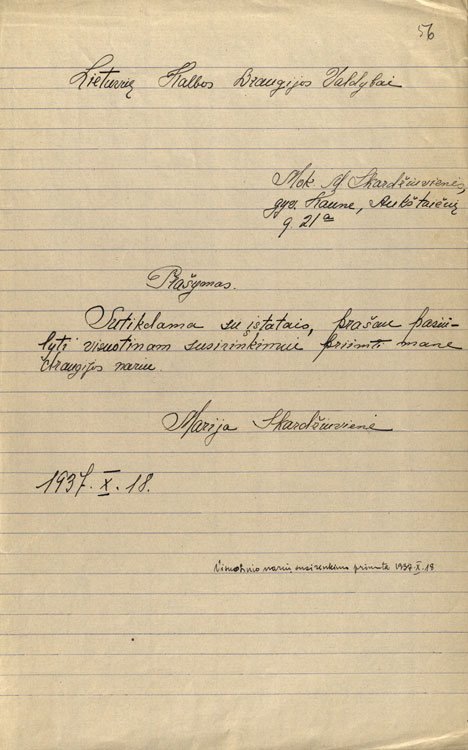 56
Lietuvių Kalbos Draugijos Valdybai
Mok. M. Skardžiuvienės,
gyv. Kaune, Aukštaičių
g. 21a
Prašymas.
Sutikdama su įstatais, prašau pasiū-
lyti visuotinam susirinkimui priimti mane
draugijos nariu.
Marija Skardžiuvienė
1937.X.18.
Visuotinio narių susirinkimo priimta 1937.X.18